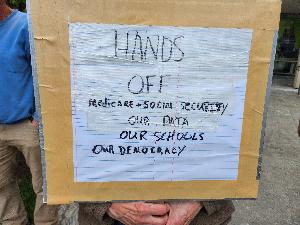 HANDS
OFF
MEDICARE + SOCIAL SECURITY
OUR DATA
OUR SCHOOLS
OUR DEMOCRACY